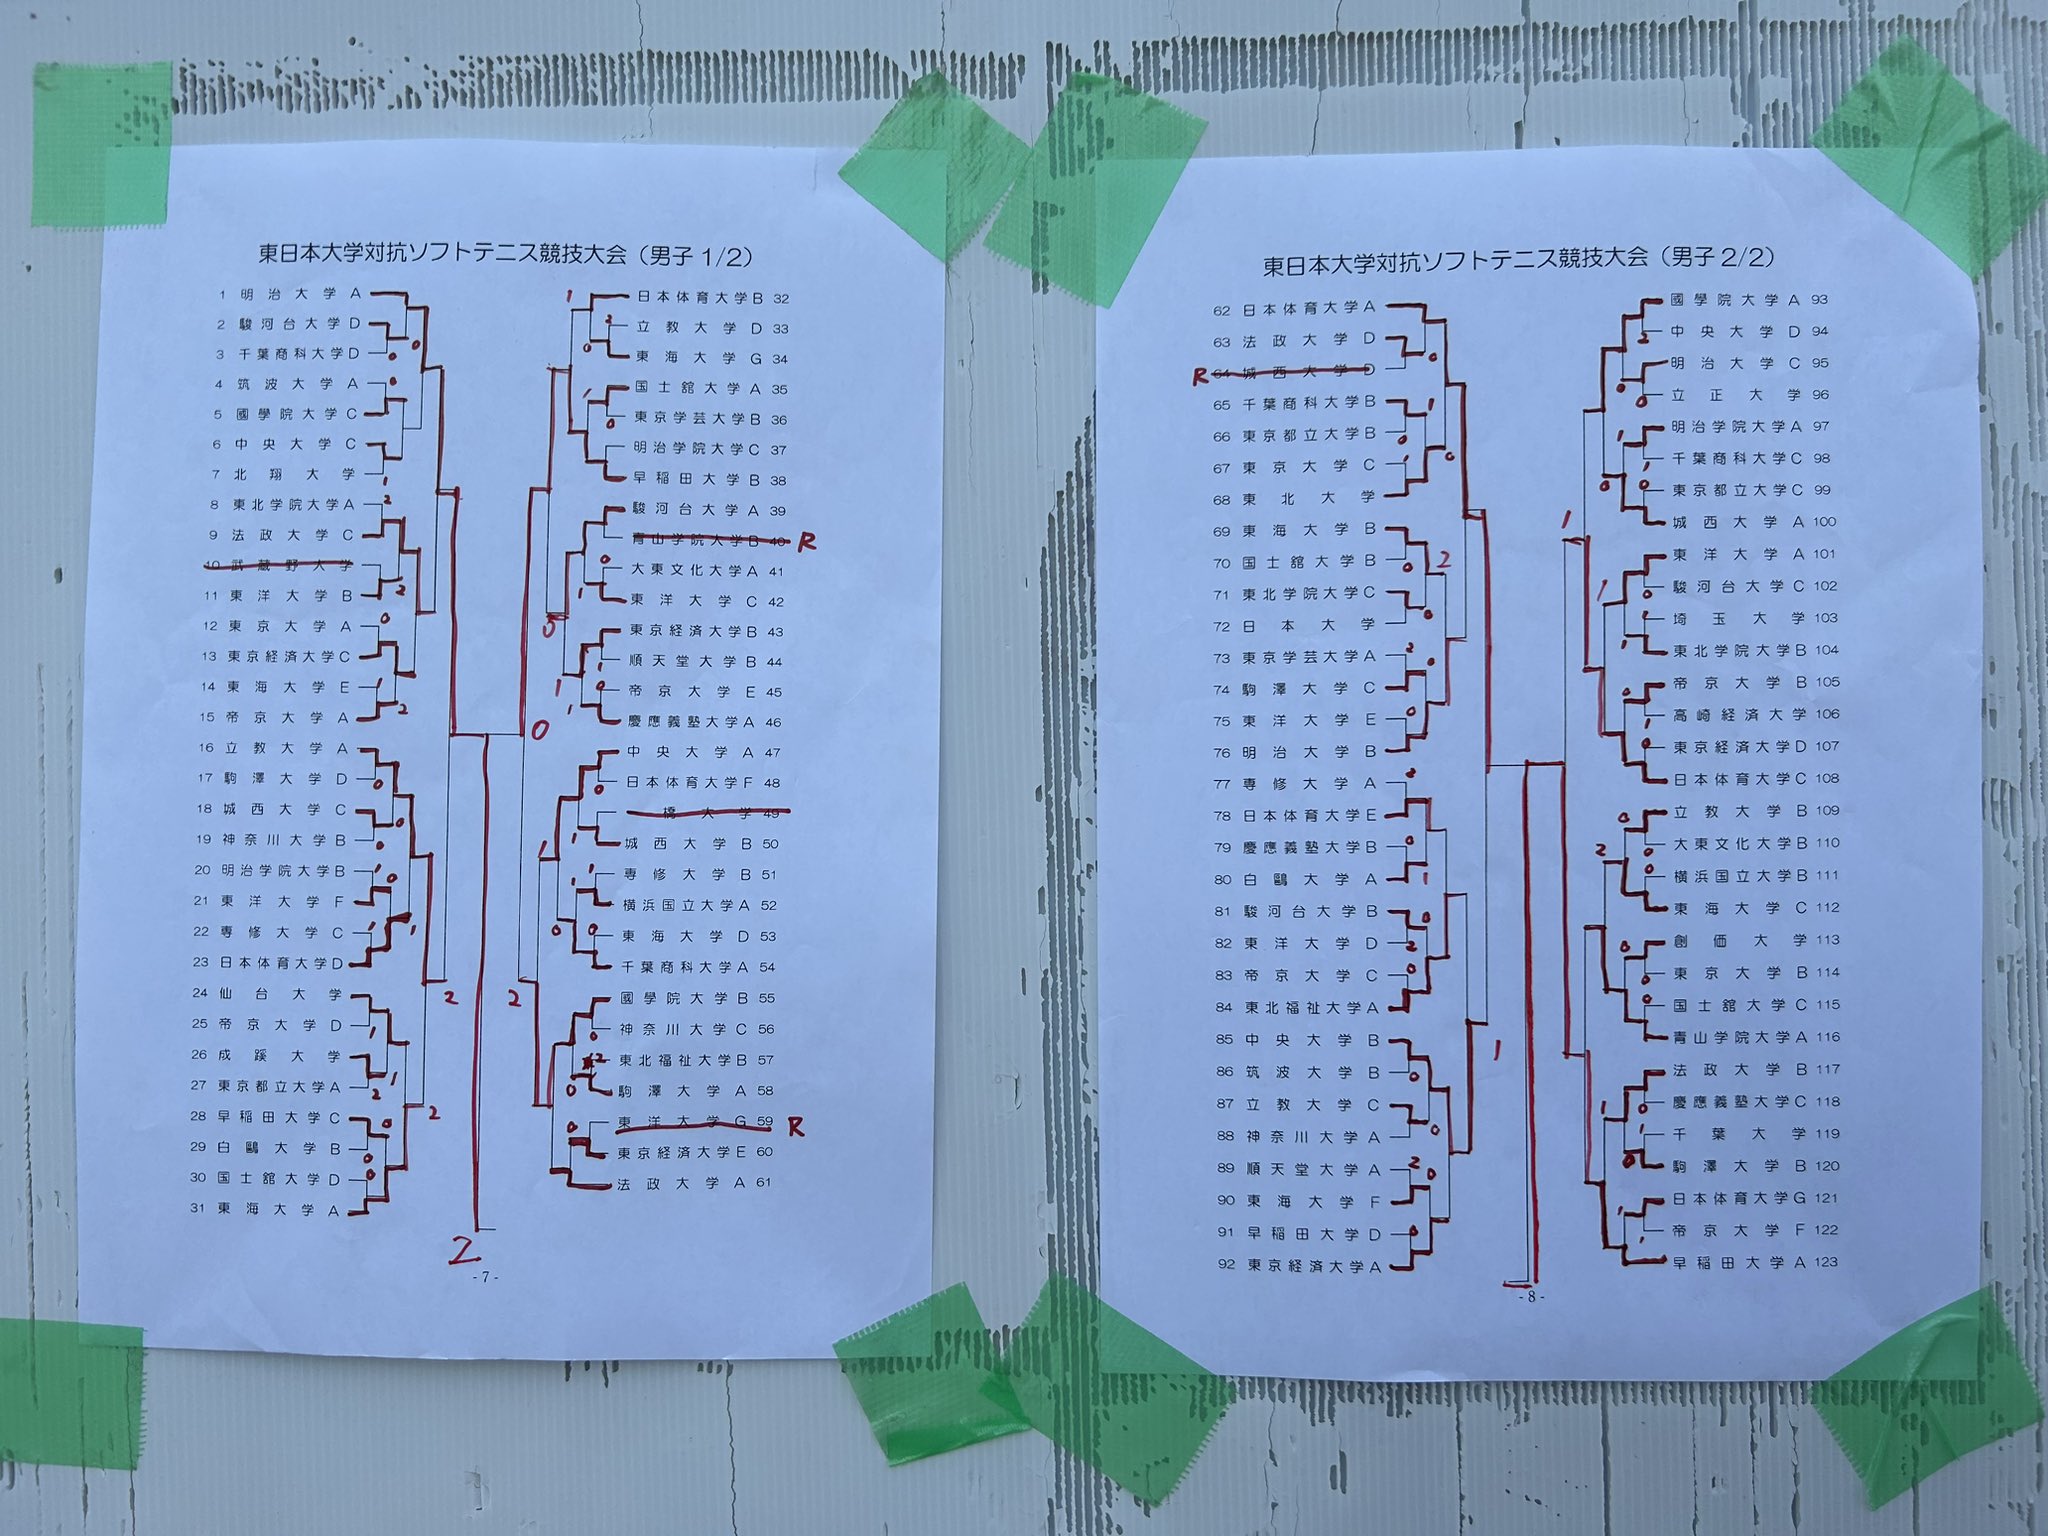 東日本大学対抗ソフトテニス競技大会（男子 1/2）
1 明治大学 A
2 駿河台大学 D
3 千葉商科大学 D
4 筑波大学 A
5 國學院大学 C
6 中央大学 C
7 北翔大学
8 東北学院大学 A
9 法政大学 C
10 武蔵野大学
11 東洋大学 B
12 東京大学 A
13 東京経済大学 C
14 東海大学 E
15 帝京大学 A
16 立教大学 A
17 駒澤大学 D
18 城西大学 C
19 神奈川大学 B
20 明治学院大学 B
21 東洋大学 F
22 専修大学 C
23 日本体育大学 D
24 仙台大学
25 帝京大学 D
26 成蹊大学
27 東京都立大学 A
28 早稲田大学 C
29 白鷗大学 B
30 国士舘大学 D
31 東海大学 A
日本体育大学 B 32
立教大学 D 33
東海大学 G 34
国士舘大学 A 35
東京学芸大学 B 36
明治学院大学 C 37
早稲田大学 B 38
駿河台大学 A 39
青山学院大学 B 40 R
大東文化大学 A 41
東洋大学 C 42
東京経済大学 B 43
順天堂大学 B 44
帝京大学 E 45
慶應義塾大学 A 46
中央大学 A 47
日本体育大学 F 48
橋大学 49
城西大学 B 50
専修大学 B 51
横浜国立大学 A 52
東海大学 D 53
千葉商科大学 A 54
國學院大学 B 55
神奈川大学 C 56
東北福祉大学 B 57
駒澤大学 A 58
東洋大学 G 59 R
東京経済大学 E 60
法政大学 A 61
2
- 7 -
東日本大学対抗ソフトテニス競技大会（男子 2/2）
62 日本体育大学 A
63 法政大学 D
R 64 城西大学 D
65 千葉商科大学 B
66 東京都立大学 B
67 東京大学 C
68 東北大学
69 東海大学 B
70 国士舘大学 B
71 東北学院大学 C
72 日本大学
73 東京学芸大学 A
74 駒澤大学 C
75 東洋大学 E
76 明治大学 B
77 専修大学 A
78 日本体育大学 E
79 慶應義塾大学 B
80 白鷗大学 A
81 駿河台大学 B
82 東洋大学 D
83 帝京大学 C
84 東北福祉大学 A
85 中央大学 B
86 筑波大学 B
87 立教大学 C
88 神奈川大学 A
89 順天堂大学 A
90 東海大学 F
91 早稲田大学 D
92 東京経済大学 A
國學院大学 A 93
中央大学 D 94
明治大学 C 95
立正大学 96
明治学院大学 A 97
千葉商科大学 C 98
東京都立大学 C 99
城西大学 A 100
東洋大学 A 101
駿河台大学 C 102
埼玉大学 103
東北学院大学 B 104
帝京大学 B 105
高崎経済大学 106
東京経済大学 D 107
日本体育大学 C 108
立教大学 B 109
大東文化大学 B 110
横浜国立大学 B 111
東海大学 C 112
創価大学 113
東京大学 B 114
国士舘大学 C 115
青山学院大学 A 116
法政大学 B 117
慶應義塾大学 C 118
千葉大学 119
駒澤大学 B 120
日本体育大学 G 121
帝京大学 F 122
早稲田大学 A 123
- 8 -